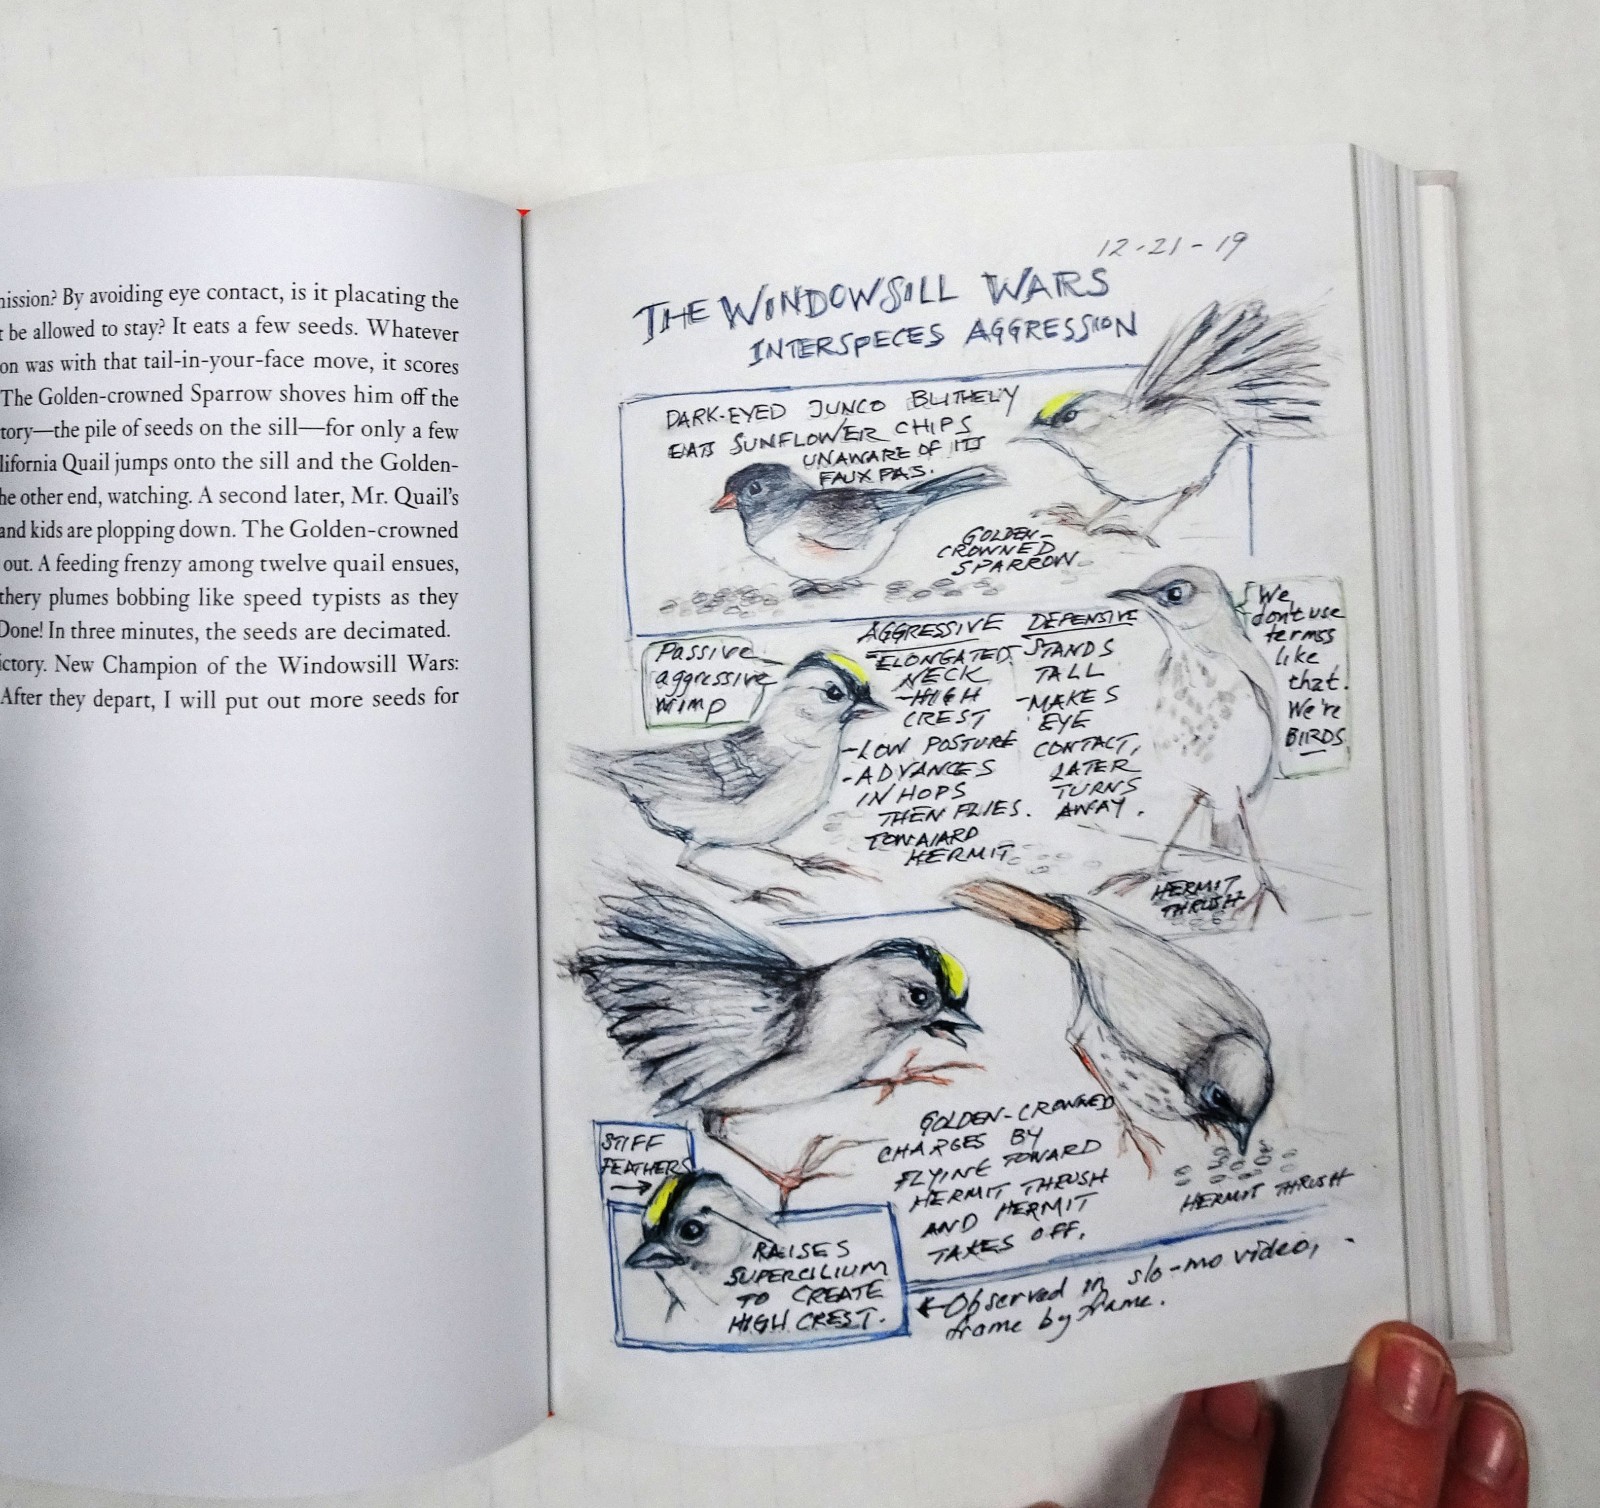 ? By avoiding eye contact, is it placating the
be allowed to stay? It eats a few seeds. Whatever
on was with that tail-in-your-face move, it scores
The Golden-crowned Sparrow shoves him off the
tory—the pile of seeds on the sill—for only a few
lifornia Quail jumps onto the sill and the Golden-
he other end, watching. A second later, Mr. Quail's
and kids are plopping down. The Golden-crowned
out. A feeding frenzy among twelve quail ensues,
thery plumes bobbing like speed typists as they
Done! In three minutes, the seeds are decimated.
ictory. New Champion of the Windowsill Wars:
After they depart, I will put out more seeds for
12-21-19
THE WINDOWSILL WARS
INTERSPECES AGGRESSION
DARK-EYED JUNCO BLITHELY
EATS SUNFLOWER CHIPS
UNAWARE OF ITS
FAUX PAS.
GOLDEN-
CROWNED
SPARROW
Passive
aggressive
wimp
AGGRESSIVE
-ELONGATED
NECK
-HIGH
CREST
-LOW POSTURE
-ADVANCES
IN HOPS
THEN FLIES.
TOWAIARD
HERMIT
DEFENSIVE
STANDS
TALL
-MAKES
EYE
CONTACT,
LATER
TURNS
AWAY.
We
don't use
termss
like
that.
We're
BIIRDS
HERMIT
THRUSH
GOLDEN-CROWNED
CHARGES BY
FLYING TOWARD
HERMIT THRUSH
AND HERMIT
TAKES OFF.
HERMIT THRUSH
STIFF
FEATHERS
→
RAISES
SUPERCILIUM
TO CREATE
HIGH CREST.
←Observed in slo-mo video,
frame by frame.